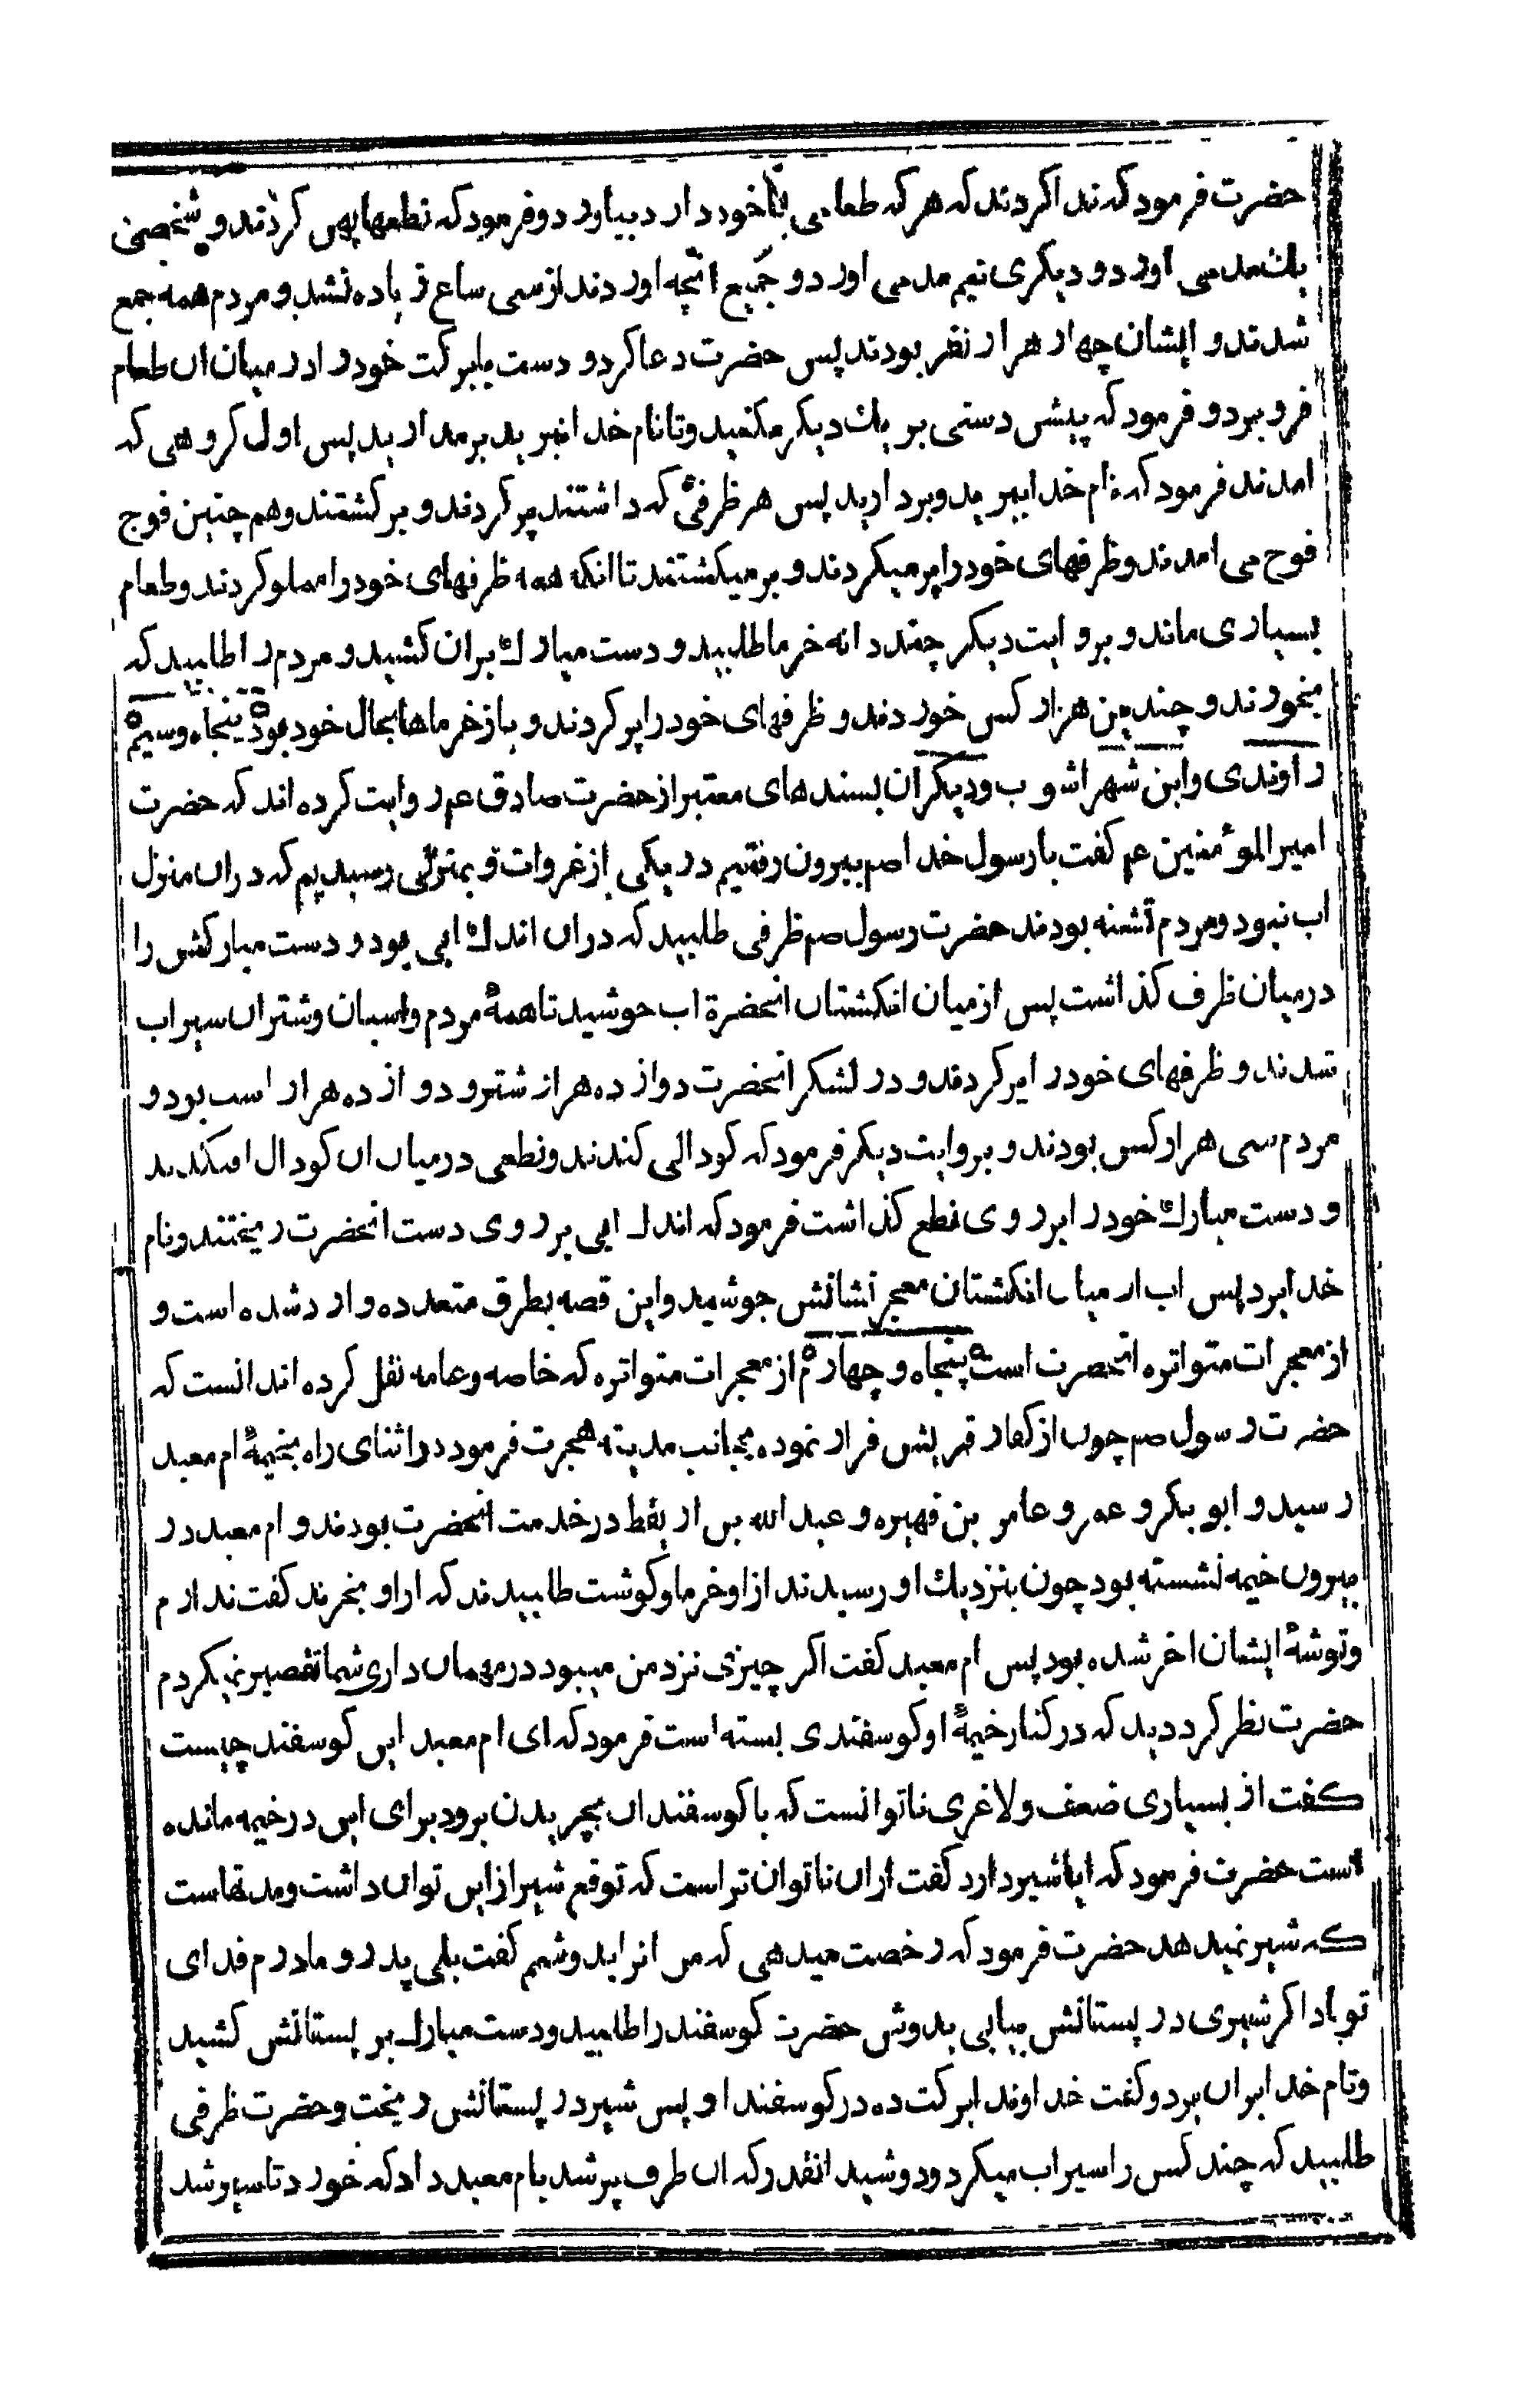 حضرت فرمود که ندا کردند که هر که طعامی با خود دارد بیاورد و فرمود که نطعها پهن کردند و شخصی
یك مد می اورد و دیکری نیم مد می اورد و جمیع انچه اوردند از سی صاع زیاده نشد و مردم همه جمع
شدند و ایشان چهار هزار نفر بودند پس حضرت دعا کرد و دست با برکت خود را در میان ان طعام
فرو برد و فرمود که پیش دستی بر یك دیکر مکنید و تا نام خدا نبرید بر مدارید پس اول کروهی که
امدند فرمود که نام خدا ببرید و بردارید پس هر ظرفی که داشتند پر کردند و بر کشتند و هم چنین فوج
فوج می امدند و ظرفهای خود را پر میکردند و بر میکشتند تا انکه همه ظرفهای خود را مملو کردند و طعام
بسیاری ماند و بروایت دیکر چند دانه خرما طلبید و دست مبارك بران کشید و مردم را طلبید که
بخورند و چندین هزار کس خوردند و ظرفهای خود را پر کردند و باز خرماها بحال خود بود پنجاه و سیم
راوندی و ابن شهر اشوب و دیکران بسندهای معتبر از حضرت صادق عم روایت کرده اند که حضرت
امیر المؤمنین عم کفت با رسول خدا صم بیرون رفتیم در یکی از غزوات و بمنزلی رسیدیم که دران منزل
اب نبود و مردم تشنه بودند حضرت رسول صم ظرفی طلبید که دران اندك ابی بود و دست مبارکش را
در میان ظرف کذاشت پس از میان انکشتان انحضرة اب جوشید تا همهٔ مردم و اسبان و شتران سیراب
شدند و ظرفهای خود را پر کردند و در لشکر انحضرت دوازده هزار شتر و دوازده هزار اسب بود و
مردم سی هزار کس بودند و بروایت دیکر فرمود که کودالی کندند و نطعی در میان ان کودال افکندند
و دست مبارك خود را بر روی نطع کذاشت فرمود که اندك ابی بر روی دست انحضرت ریختند و نام
خدا برد پس اب از میان انکشتان معجز نشانش جوشید و این قصه بطرق متعدده وارد شده است و
از معجزات متواتره انحضرت است پنجاه و چهارم از معجزات متواتره که خاصه و عامه نقل کرده اند انست که
حضرت رسول صم چون از کفار قریش فرار نموده بجانب مدینه هجرت فرمود در اثنای راه بخیمهٔ ام معبد
رسید و ابو بکر و عمر و عامر بن فهیره و عبد الله بن اریقط در خدمت انحضرت بودند و ام معبد در
بیرون خیمه نشسته بود چون بنزدیك او رسیدند از او خرما و کوشت طلبیدند که از او بخرند کفت ندارم
و توشهٔ ایشان اخر شده بود پس ام معبد کفت اکر چیزی نزد من میبود در مهمان داری شما تقصیر نمیکردم
حضرت نظر کرد دید که در کنار خیمهٔ او کوسفندی بسته است فرمود که ای ام معبد این کوسفند چیست
کفت از بسیاری ضعف و لاغری ناتوانست که با کوسفندان بچریدن برود برای این در خیمه مانده
است حضرت فرمود که ایا شیر دارد کفت ازان ناتوان تر است که توقع شیر ازاین توان داشت و مدتهاست
که شیر نمیدهد حضرت فرمود که رخصت میدهی که من انرا بدوشم کفت بلی پدر و مادرم فدای
تو باد اکر شیری در پستانش بیابی بدوش حضرت کوسفند را طلبید و دست مبارك بر پستانش کشید
و نام خدا بران برد و کفت خداوندا برکت ده در کوسفند او پس شیر در پستانش ریخت و حضرت ظرفی
طلبید که چند کس را سیراب میکرد و دوشید انقدر که ان ظرف پر شد بام معبد داد که خورد تا سیر شد